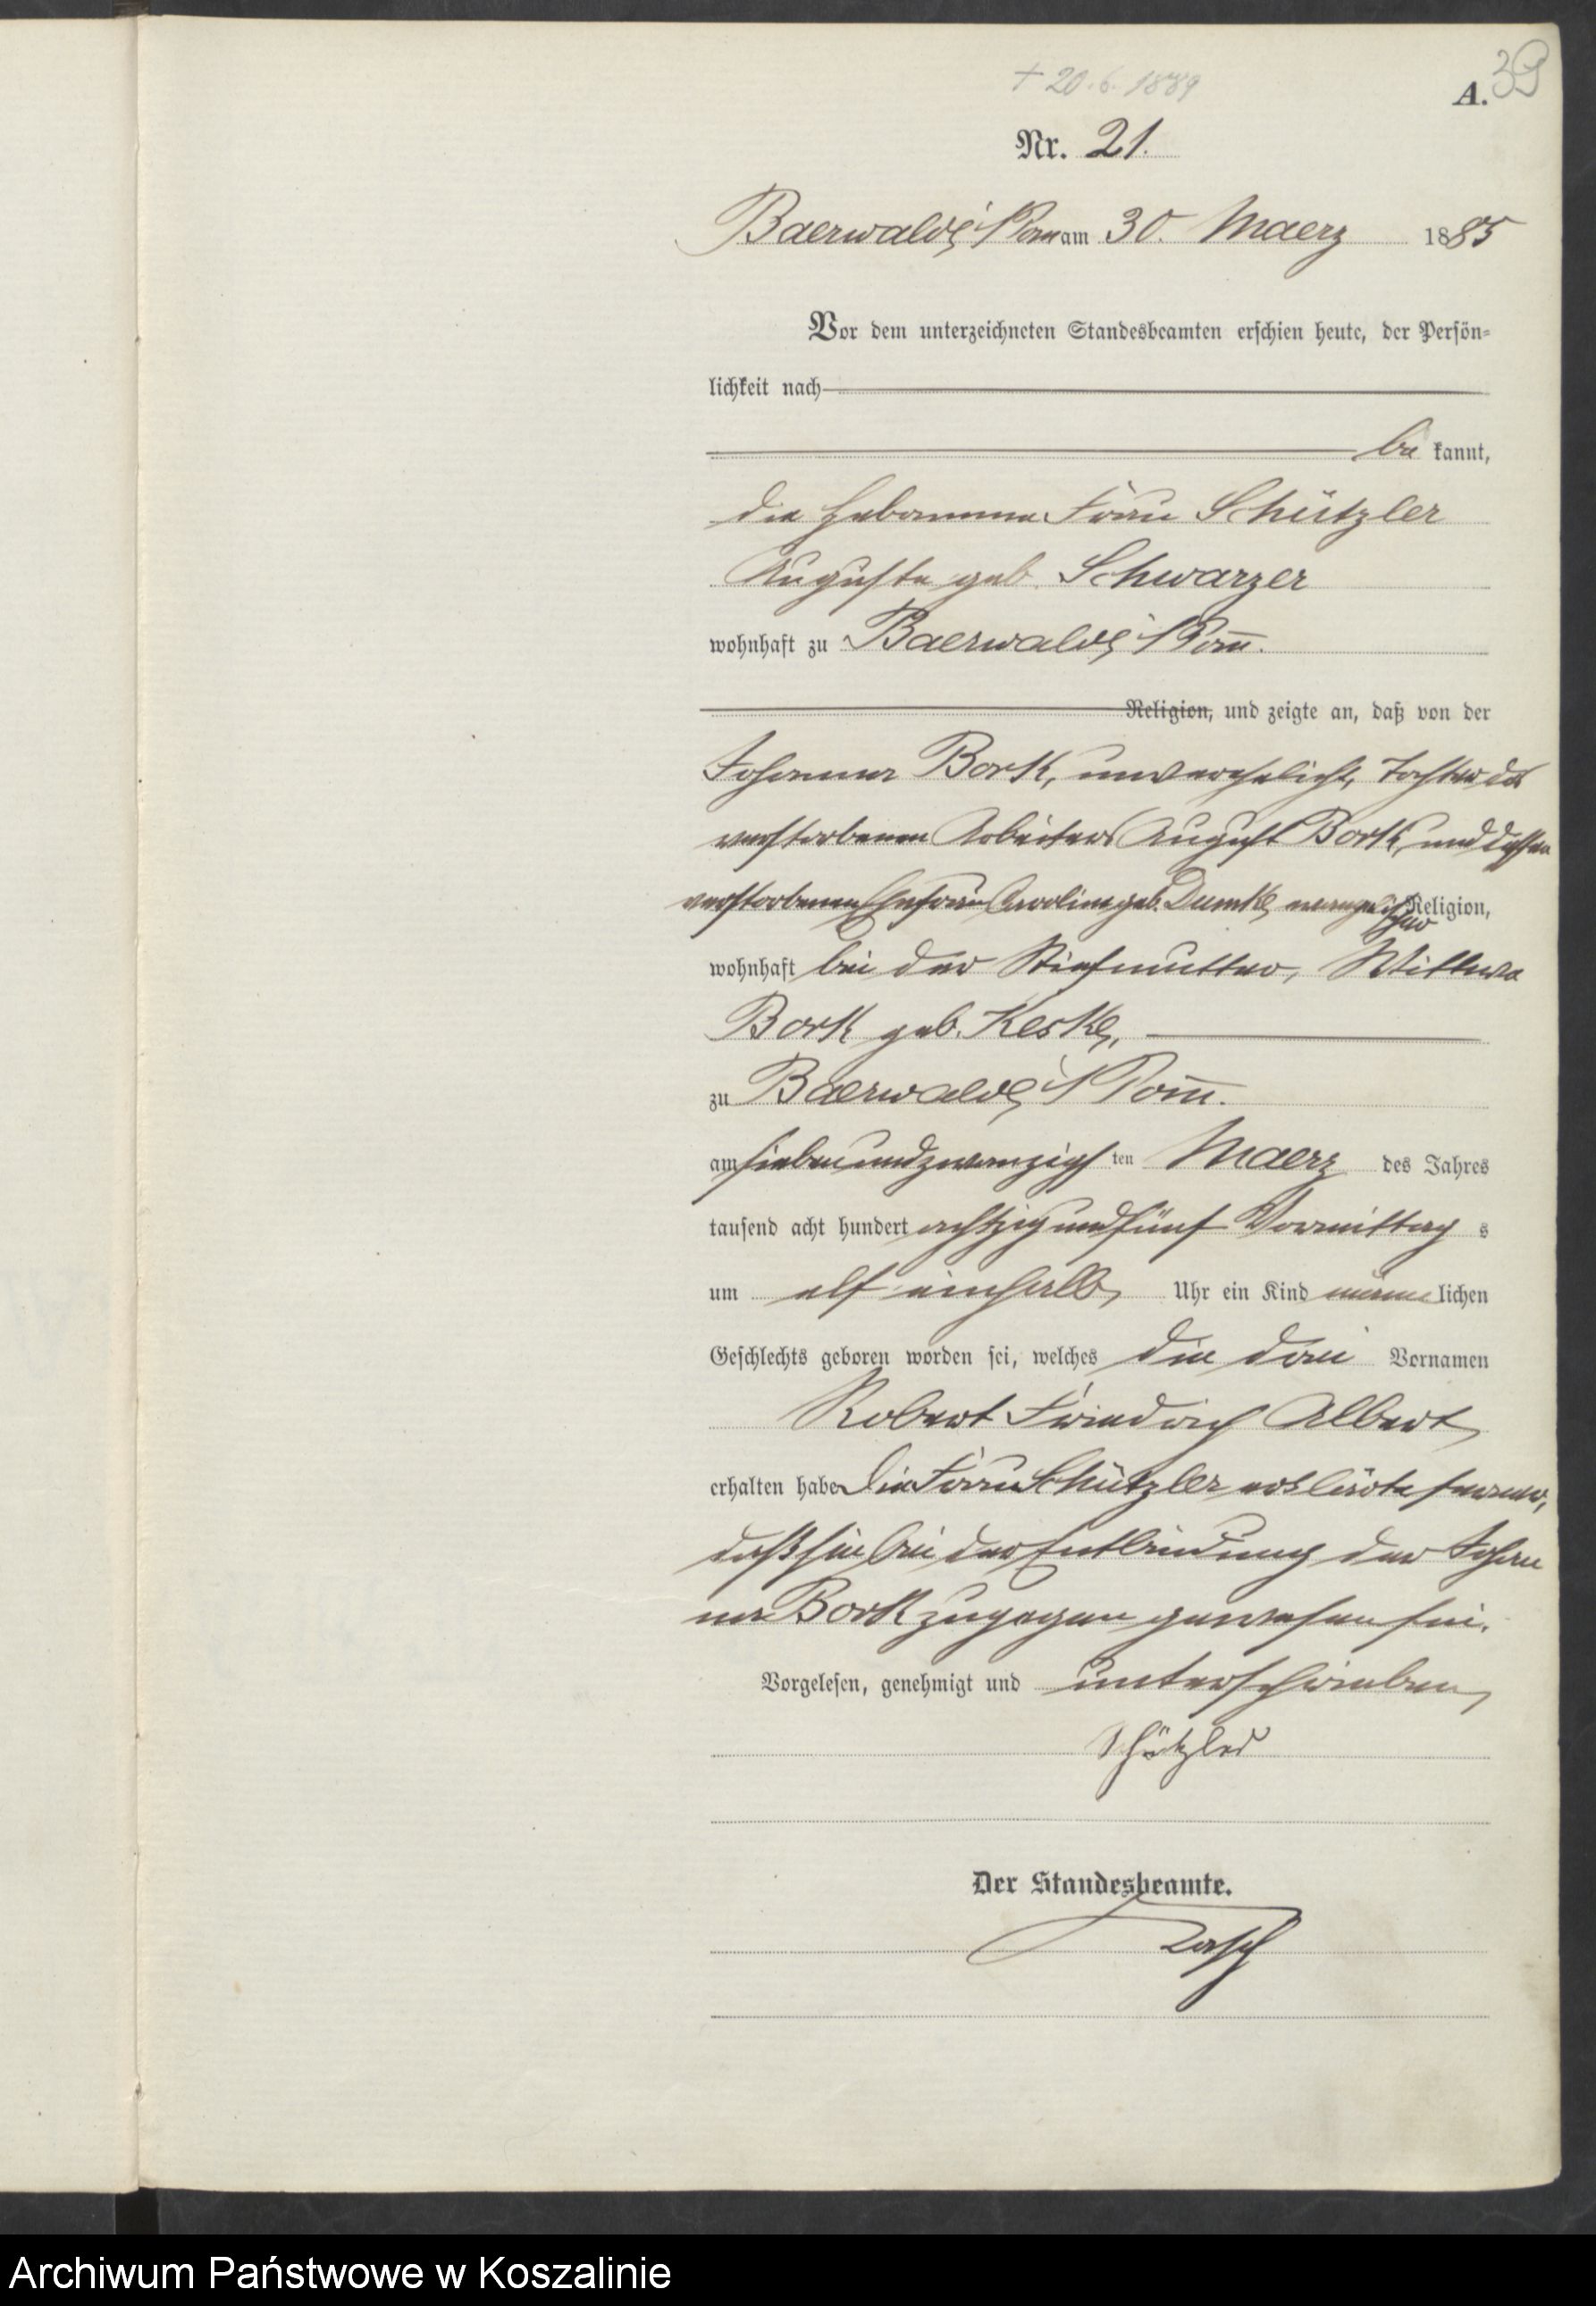 + 20.6.1889
A. 39
Nr. 21.
Baerwalde i/Pom am 30. Maerz 1885
Vor dem unterzeichneten Standesbeamten erschien heute, der Persön-
lichkeit nach
be kannt,
die Hebamme Frau Schützler
Auguste geb. Schwarzer
wohnhaft zu Baerwalde i/Pom.
Religion, und zeigte an, daß von der
Johanna Bork, unverehelicht, Tochter des
verstorbenen Arbeiters August Bork, und dessen
verstorbenen Ehefrau Caroline geb. Dumke, evangelischer Religion,
wohnhaft bei der Stiefmutter, Wittwe
Bork geb. Keske,
zu Baerwalde i/Pom.
am siebenundzwanzigsten Maerz des Jahres
tausend acht hundert achtzig und fünf Vormittags
um elf einhalb Uhr ein Kind männlichen
Geschlechts geboren worden sei, welches die drei Vornamen
Robert Friedrich Albert
erhalten habe. Die Frau Schützler erklärte ferner,
daß sie bei der Entbindung der Johan
na Bork zugegen gewesen sei.
Vorgelesen, genehmigt und unterschrieben
Schützler
Der Standesbeamte.
Archiwum Państwowe w Koszalinie